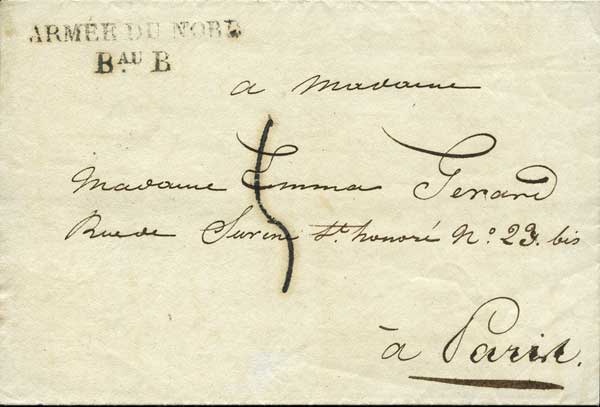 ARMÉE DU NORD
BAU B
a Madame
Madame Emma Gerard
Rue de Surene St. honoré No. 23. bis
à Paris.